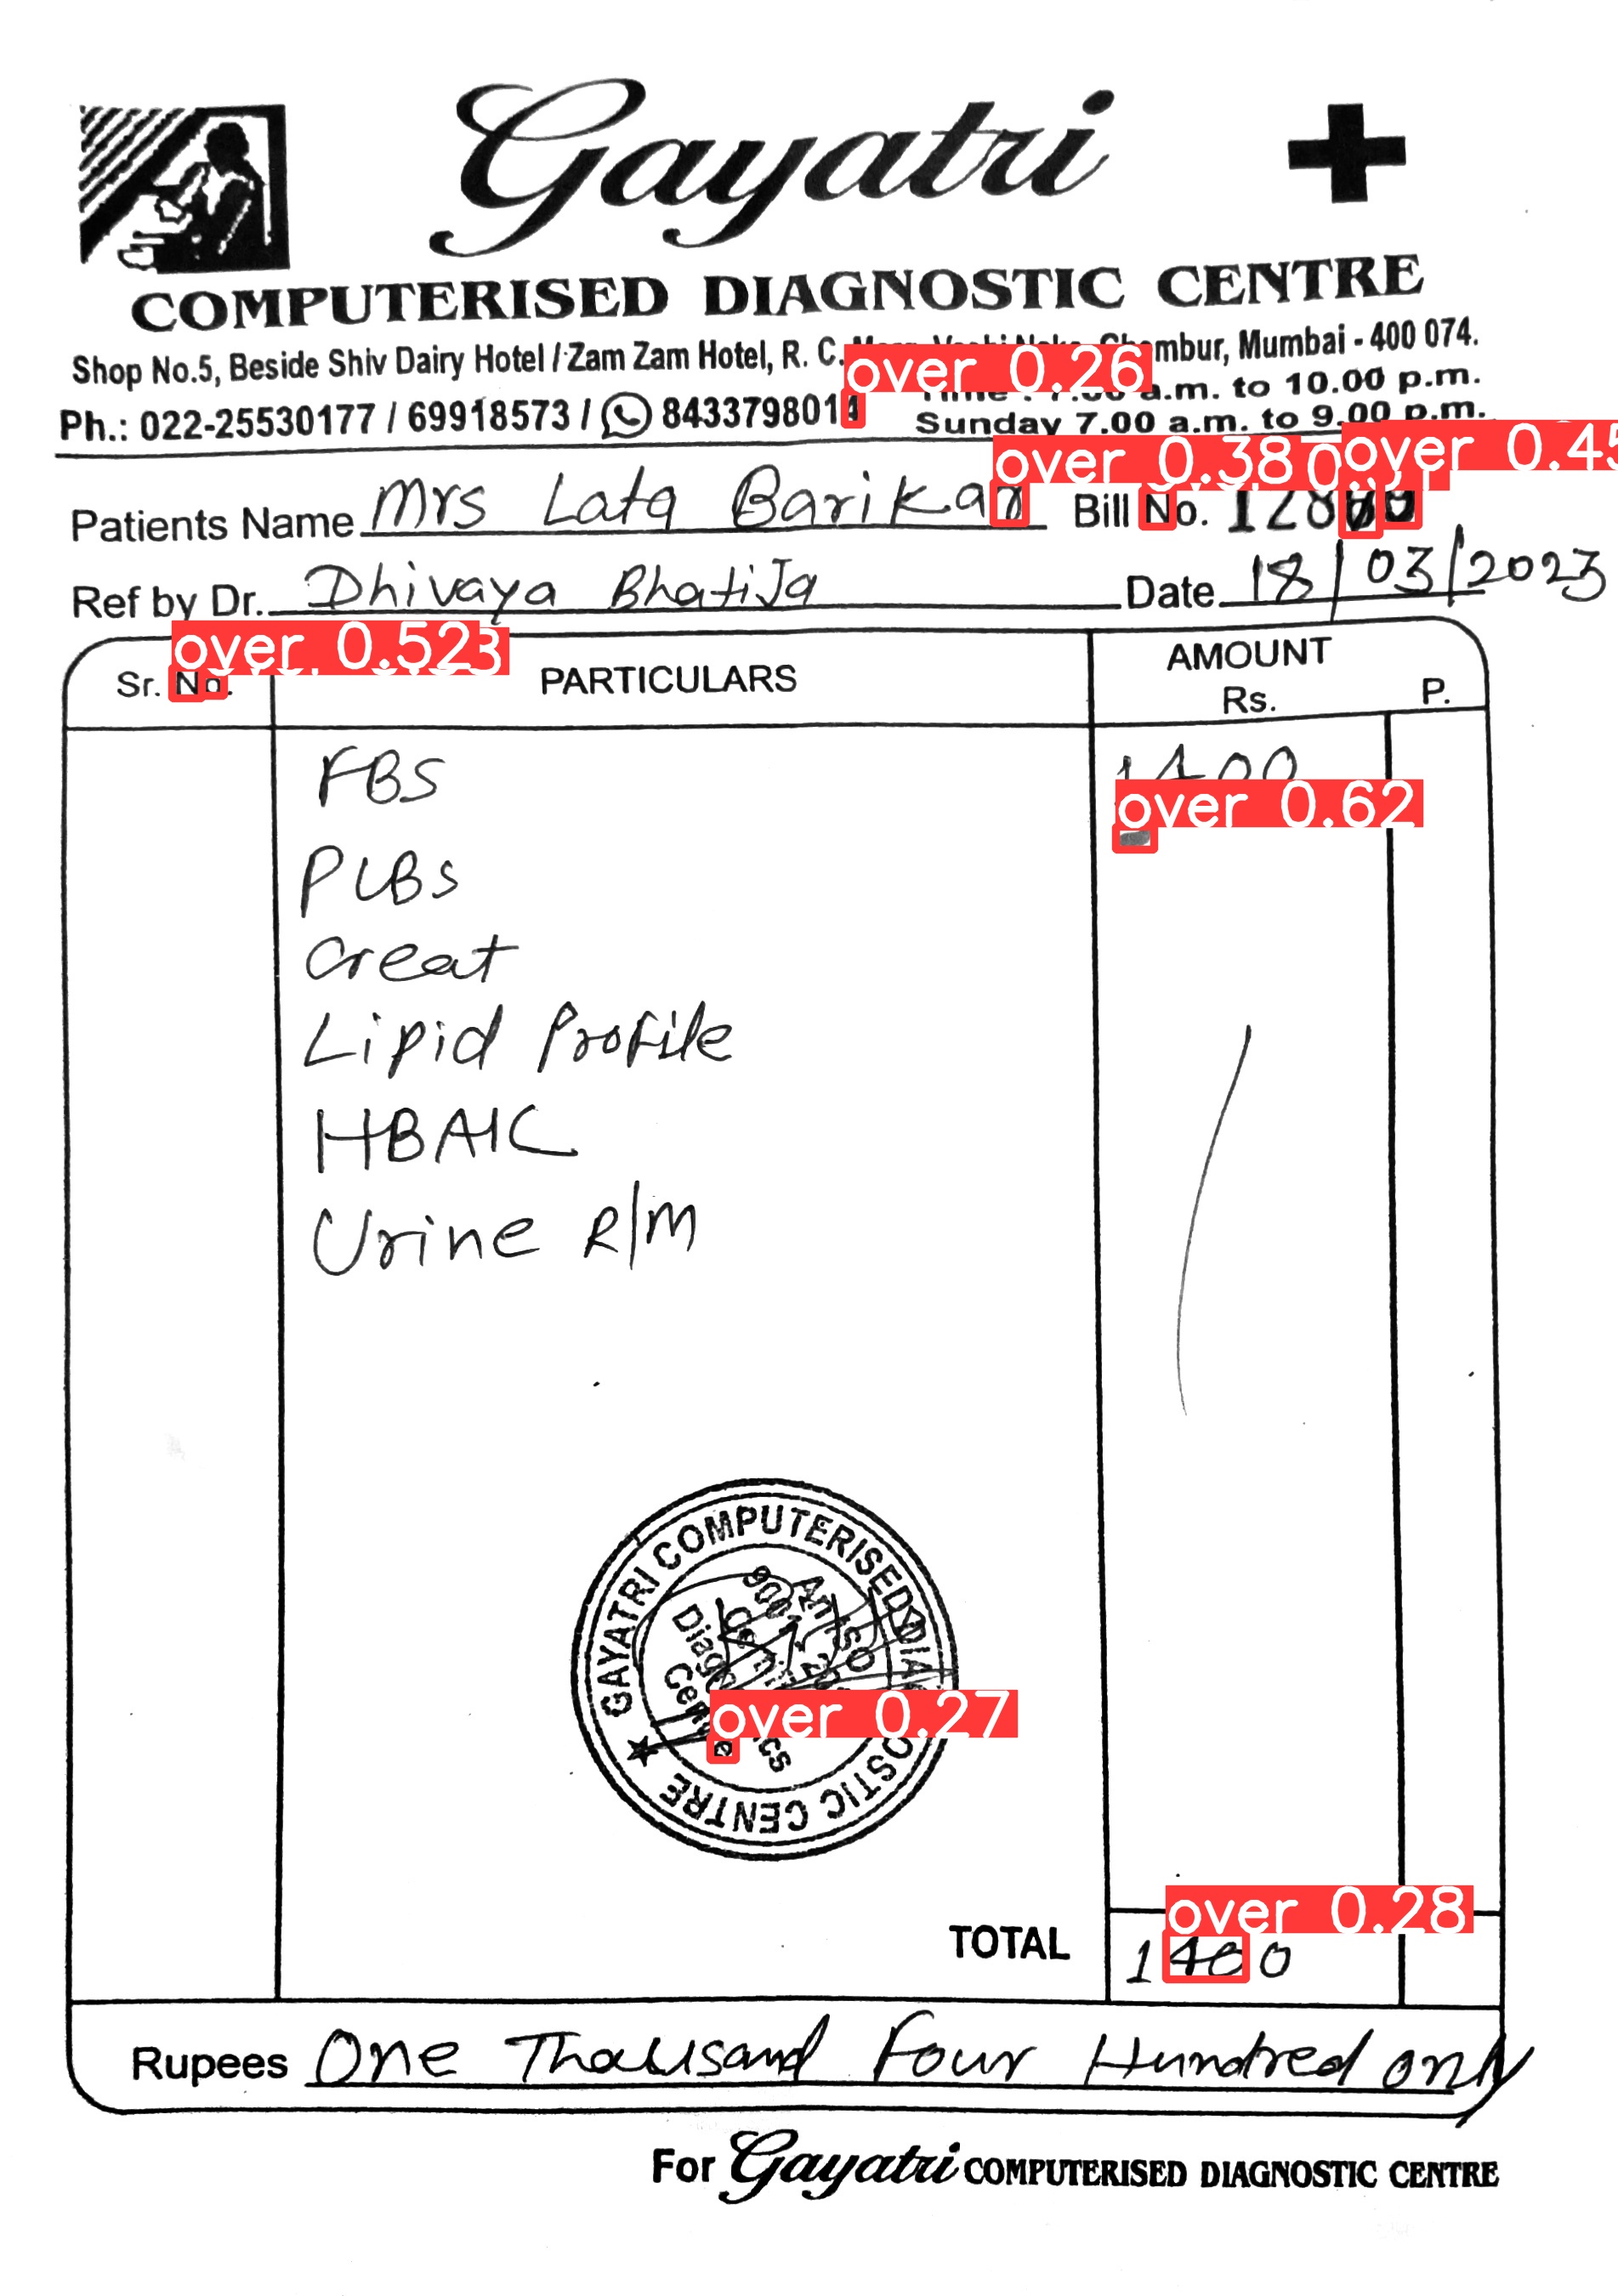 Gayatri
COMPUTERISED DIAGNOSTIC CENTRE
Shop No.5, Beside Shiv Dairy Hotel / Zam Zam Hotel, R. C. mbur, Mumbai - 400 074.
over 0.26
a.m. to 10.00 p.m.
Ph.: 022-25530177 / 69918573 / 843379801
Sunday 7.00 a.m. to 9.00 p.m.
over 0.38 over 0.45
Patients Name Mrs Lata Barikar Bill No.
Ref by Dr. Dhivaya Bhatija Date 18/03/2023
over 0.52
Sr. No. PARTICULARS AMOUNT Rs. P.
FBS 1400
over 0.62
PLBS
Creat
Lipid Profile
HBA1C
Urine R/M
GAYATRI COMPUTERISED DIAGNOSTIC CENTRE
over 0.27
over 0.28
TOTAL 1400
Rupees One Thousand Four Hundred only
For Gayatri COMPUTERISED DIAGNOSTIC CENTRE